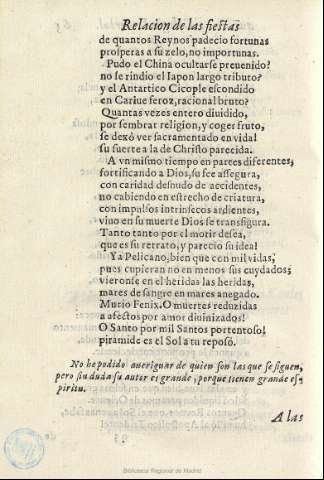 Relacion de las fiestas
de quantos Reynos padecio fortunas
prosperas a su zelo, no importunas.
Pudo el China ocultarse preuenido?
no se rindio el Iapon largo tributo?
y el Antartico Cicople escondido
en Cariue feroz, racional bruto?
Quantas vezes entero diuidido,
por sembrar religion, y coger fruto,
se dexò ver sacramentado en vida!
su suerte a la de Christo parecida.
A vn mismo tiempo en partes diferentes,
fortificando a Dios, su fee assegura,
con caridad desnudo de accidentes,
no cabiendo en estrecho de criatura,
con impulsos intrinsecos ardientes,
vino en su muerte Dios se transfigura.
Tanto tanto por el morir desea,
que es su retrato, y parecio su idea!
Ya Pelicano, bien que con mil vidas,
pues cupieran no en menos sus cuydados;
vieronse en el heridas las heridas,
mares de sangre en mares anegado.
Murio Fenix. O muertes reduzidas
a afectos por amor diuinizados!
O Santo por mil Santos portentoso!
piramide es el Sol a tu reposo.
No he podido aueriguar de quien son las que se siguen,
pero sin duda su autor es grande, porque tienen grande es-
piritu.
A las
Biblioteca Regional de Madrid